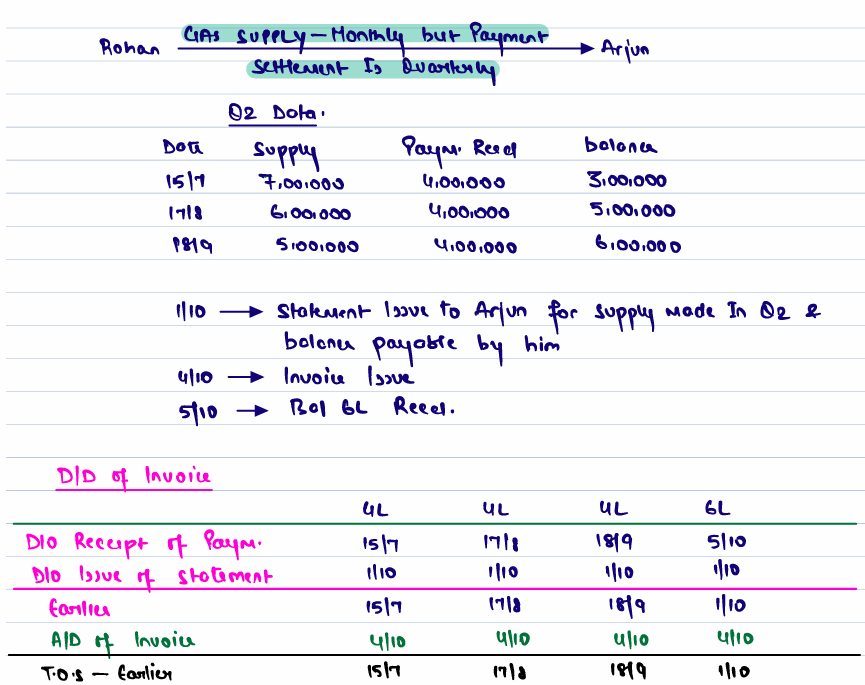 GAs SUPPLY – Monthly but Payment
Rohan → Arjun
Settlement Is Quarterly
Q2 Data.
Date Supply Paym. Recd balance
15/7 7,00,000 4,00,000 3,00,000
17/8 6,00,000 4,00,000 5,00,000
18/9 5,00,000 4,00,000 6,00,000
1/10 → Statement Issue to Arjun for supply made In Q2 &
balance payable by him
4/10 → Invoice Issue
5/10 → Bal 6L Recd.
D/D of Invoice
4L 4L 4L 6L
D/O Receipt of Paym. 15/7 17/8 18/9 5/10
D/o Issue of Statement 1/10 1/10 1/10 1/10
Earlier 15/7 17/8 18/9 1/10
A/D of Invoice 4/10 4/10 4/10 4/10
T.O.S – Earlier 15/7 17/8 18/9 1/10